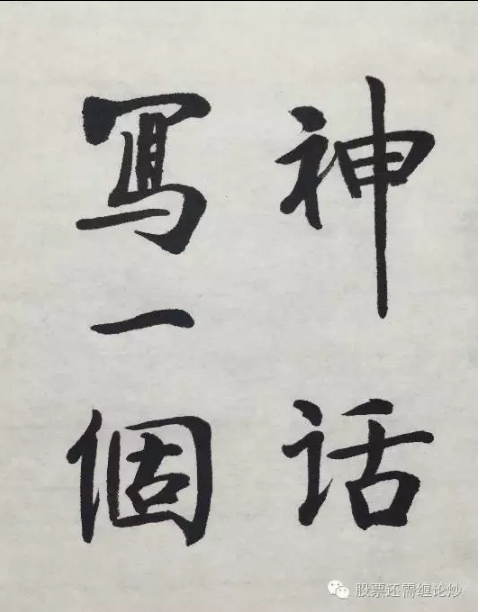 写一個
神话
股票还需缠论炒